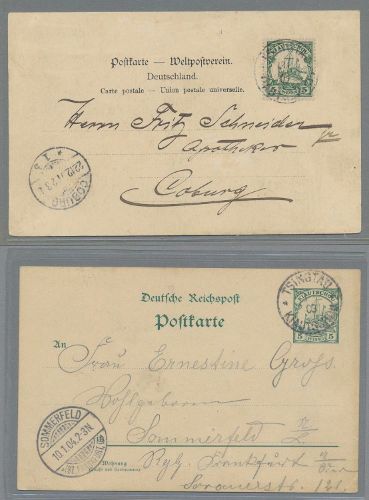 Postkarte — Weltpostverein.
Deutschland.
Carte postale — Union postale universelle.
KIAUTSCHOU
5 5
Herrn Fritz Schneider
Apotheker
Coburg
COBURG
Deutsche Reichspost
Postkarte
TSINGTAU
KIAUTSCHOU
5 5
An
Frau Ernestine Gross
Wohlgeboren
Sommerfeld
in
Rgbz. Frankfurt a/Oder
Sorauerstr. 121.
Wohnung
SOMMERFELD
19.1.04.2-3N